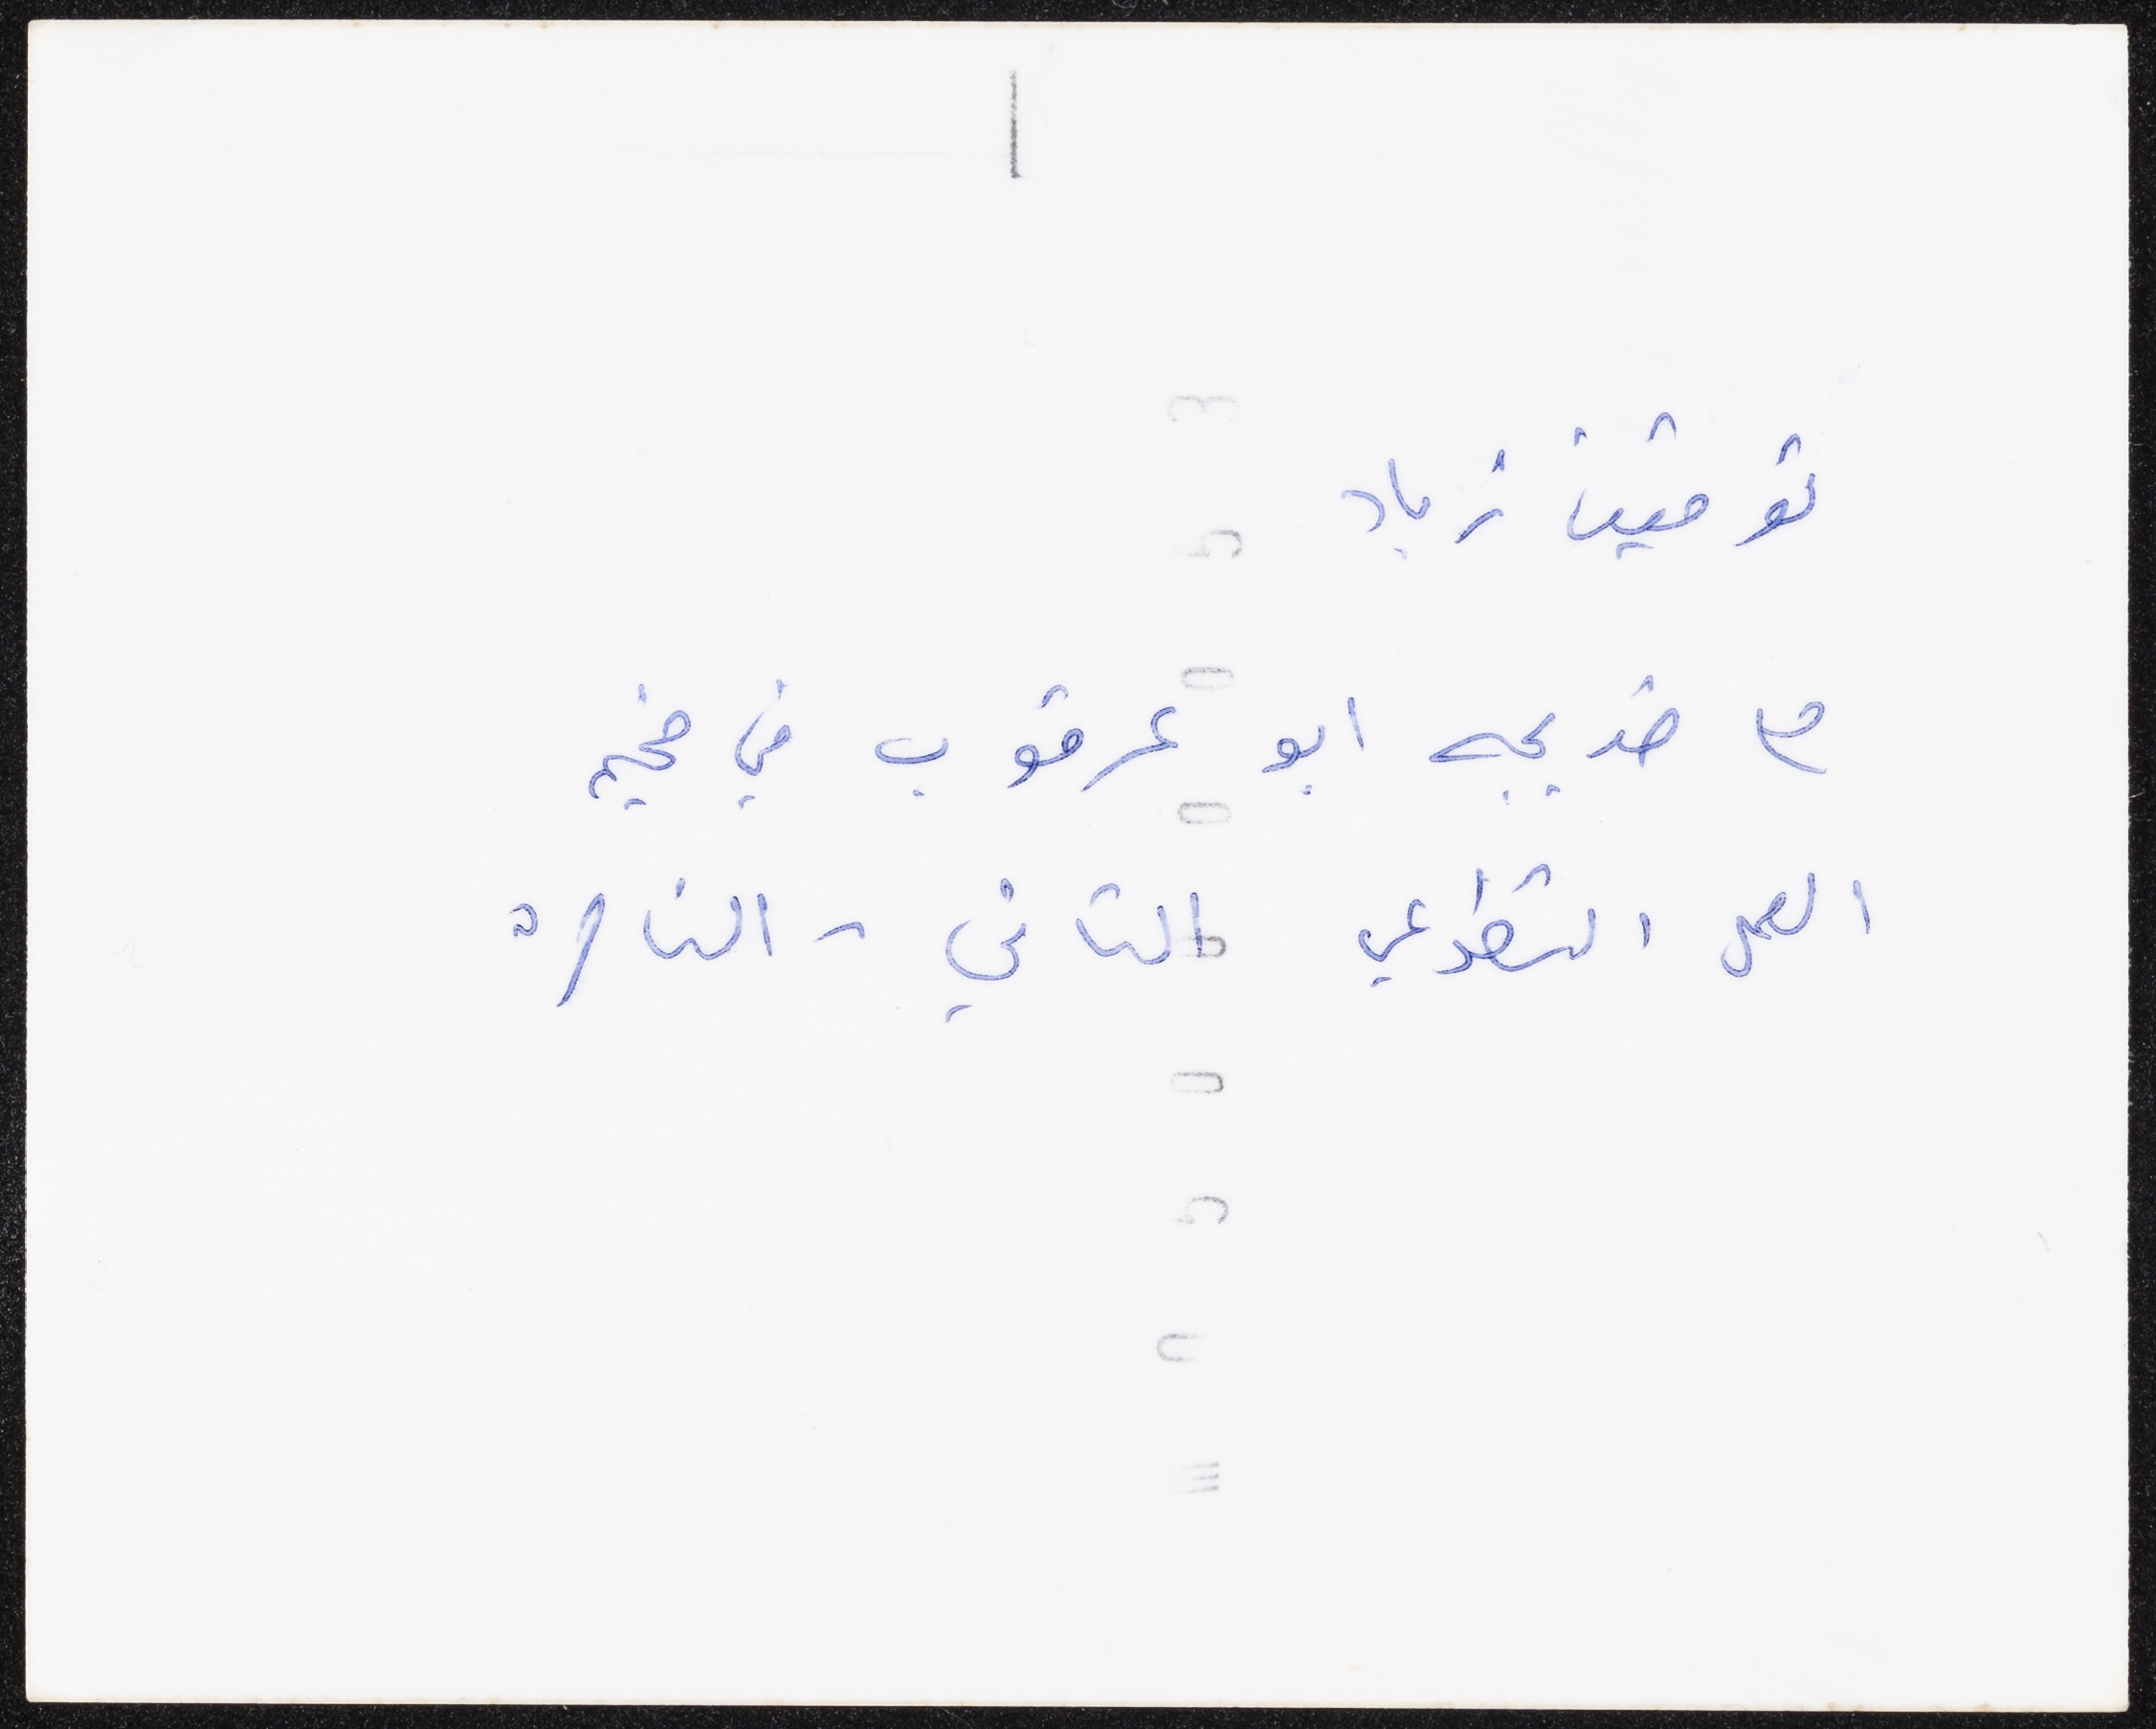 توفيق زياد
مع خديجه ابو عرقوب في مخيم
العمل التطوعي الثاني - الناصرة